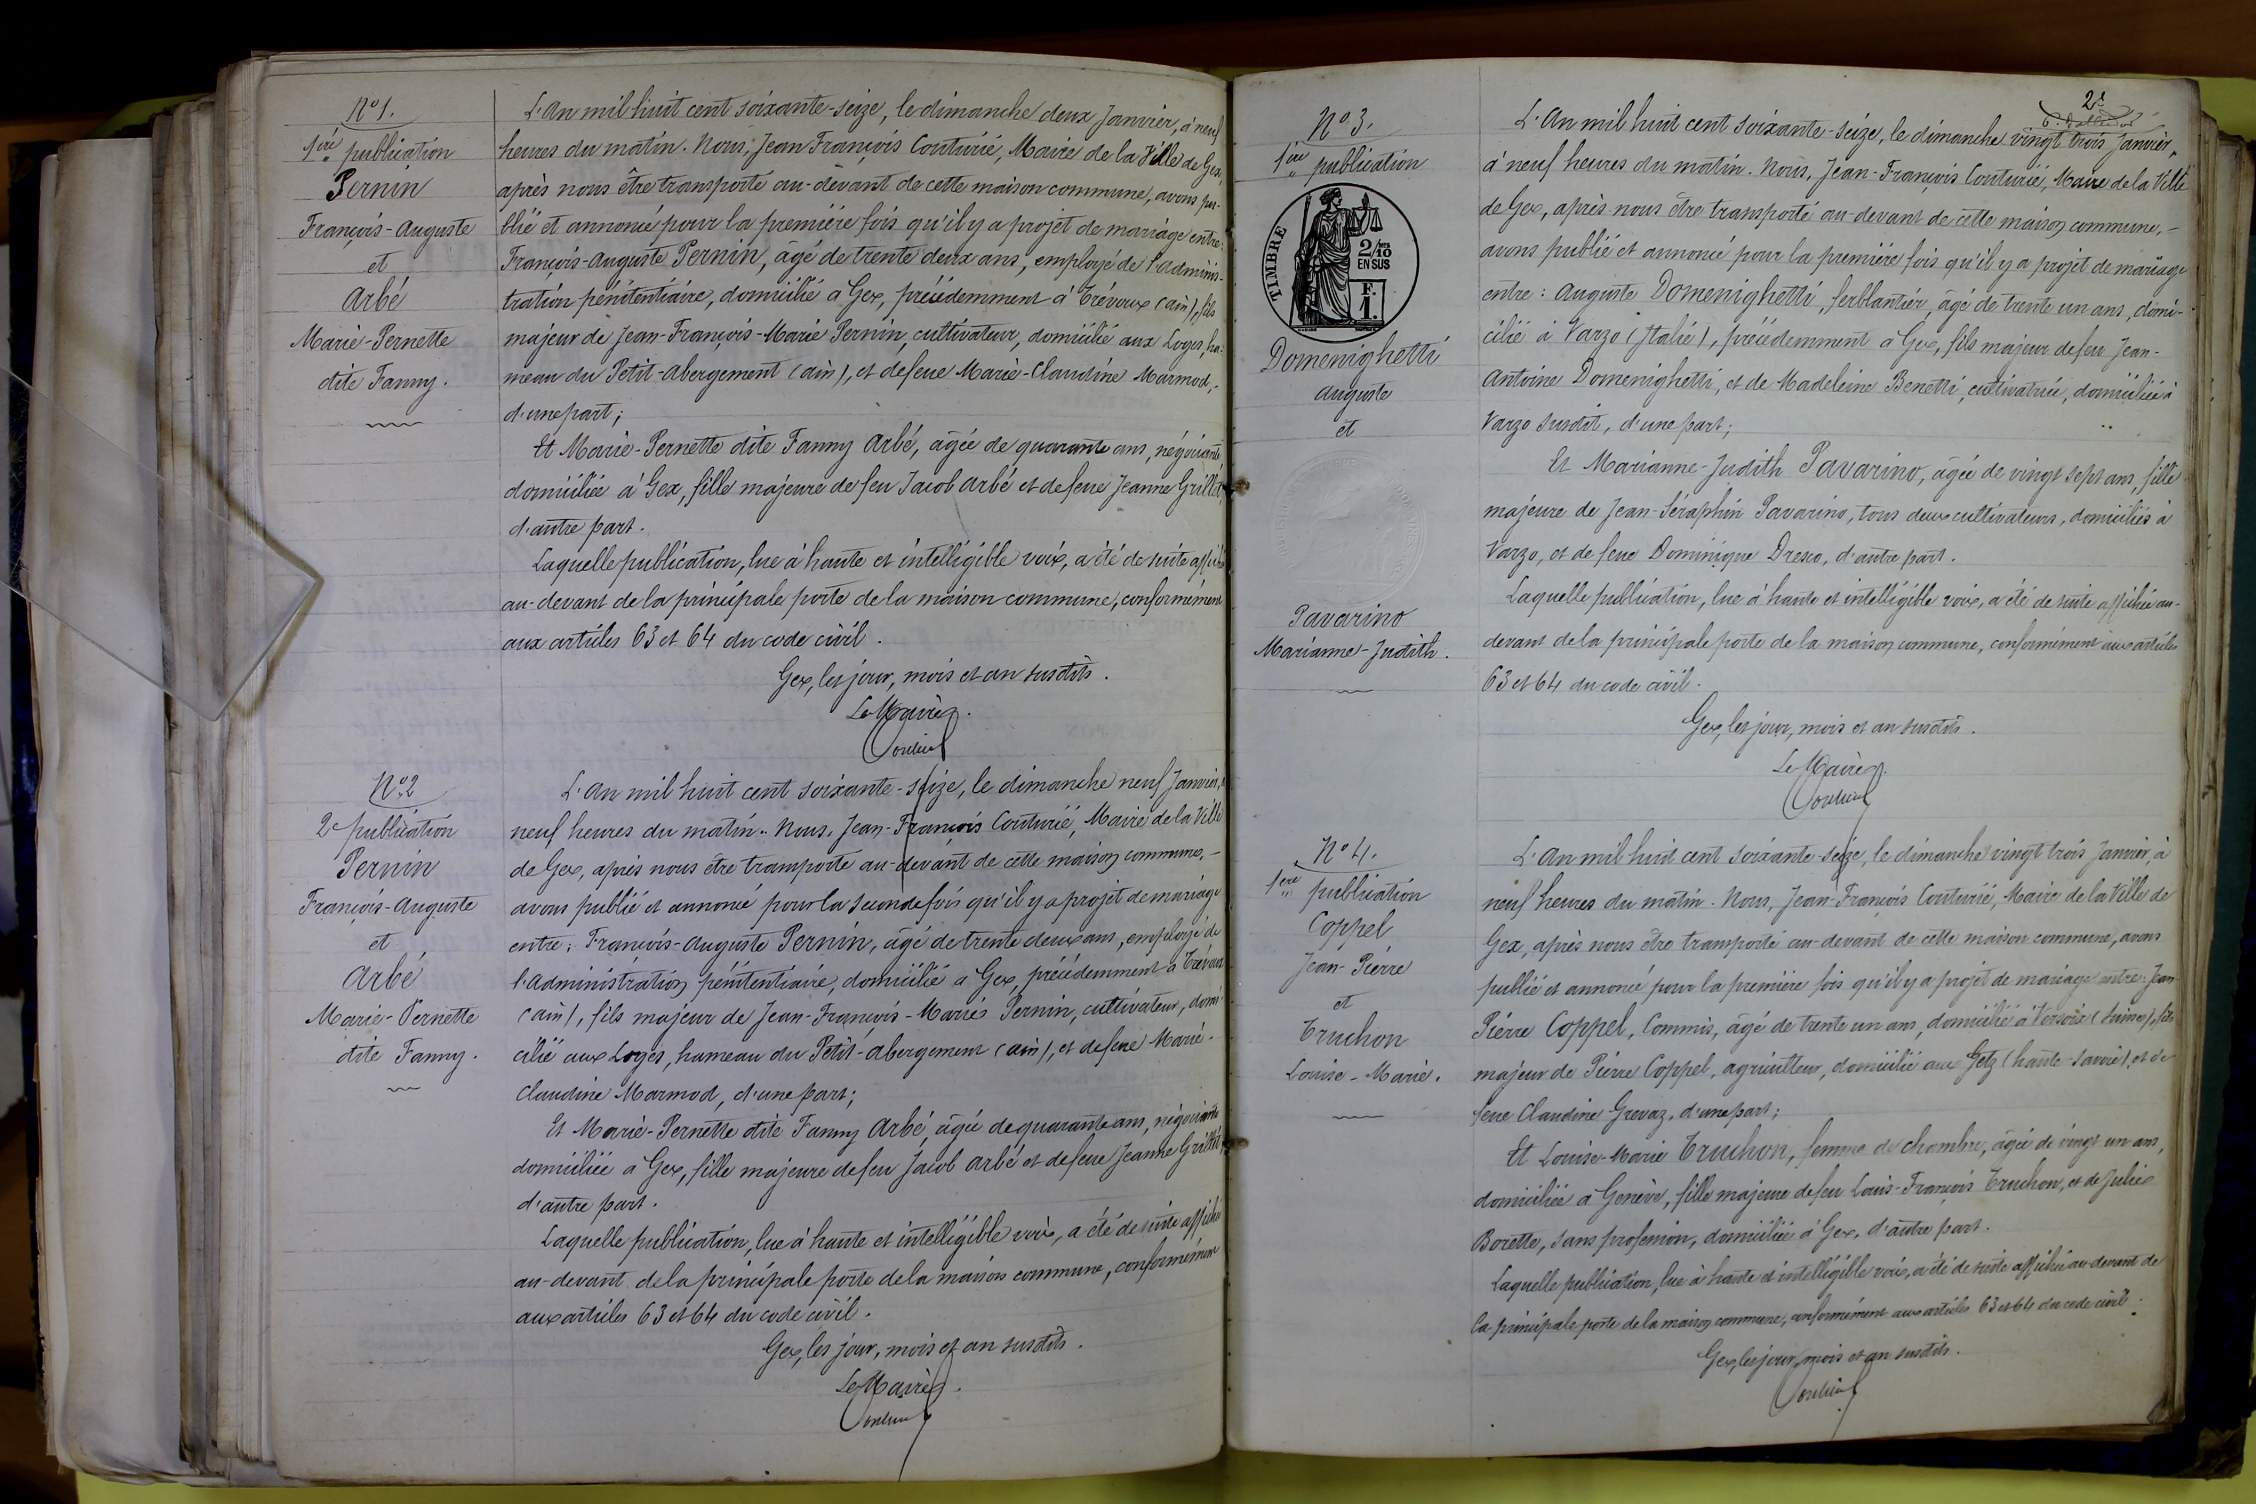 N° 1.
1ère publication
Pernin
François-Auguste
et
Arbé
Marie-Pernette
dite Fanny.
L'An mil huit cent soixante-seize, le dimanche deux Janvier, à neuf
heures du matin. Nous, Jean François Couturié, Maire de la Ville de Gex,
après nous être transporté au-devant de cette maison commune, avons pu-
blié et annoncé pour la première fois qu'il y a projet de mariage entre:
François-Auguste Pernin, âgé de trente deux ans, employé de l'adminis-
tration pénitentiaire, domicilié à Gex, précédemment à Trévoux (ain), fils
majeur de Jean-François-Marie Pernin, cultivateur, domicilié aux Loges, ha-
meau du Petit-Abergement (ain), et de feue Marie-Claudine Marmod,-
d'une part;
Et Marie-Pernette dite Fanny Arbé, âgée de quarante ans, négociante
domiciliée à Gex, fille majeure de feu Jacob Arbé et de feue Jeanne
d'autre part.
Laquelle publication, lue à haute et intelligible voix, a été de suite affichée
au-devant de la principale porte de la maison commune, conformément
aux articles 63 et 64 du code civil.
Gex, les jour, mois et an susdits.
Le Maire.
Couturié
N° 2
2e publication
Pernin
François-Auguste
et
Arbé
Marie-Pernette
dite Fanny.
L'An mil huit cent soixante-seize, le dimanche neuf Janvier, à
neuf heures du matin. Nous, Jean-François Couturié, Maire de la Ville
de Gex, après nous être transporté au-devant de cette maison commune,-
avons publié et annoncé pour la seconde fois qu'il y a projet de mariage
entre: François-Auguste Pernin, âgé de trente deux ans, employé de
l'administration pénitentiaire, domicilié à Gex, précédemment à Trévoux
(ain), fils majeur de Jean-François-Marie Pernin, cultivateur, domi-
cilié aux Loges, hameau du Petit-Abergement (ain), et de feue Marie-
Claudine Marmod, d'une part;
Et Marie-Pernette dite Fanny Arbé, âgée de quarante ans, négociante
domiciliée à Gex, fille majeure de feu Jacob Arbé et de feue Jeanne
d'autre part.
Laquelle publication, lue à haute et intelligible voix, a été de suite affichée
au-devant de la principale porte de la maison commune, conformément
aux articles 63 et 64 du code civil.
Gex, les jour, mois et an susdits.
Le Maire.
Couturié
2e
N° 3.
1ère publication
TIMBRE
2/10
EN SUS
F.
1.
Domenighetti
Auguste
et
Pavarino
Marianne-Judith.
L'An mil huit cent soixante-seize, le dimanche vingt trois Janvier,
à neuf heures du matin. Nous, Jean-François Couturié, Maire de la Ville
de Gex, après nous être transporté au-devant de cette maison commune,-
avons publié et annoncé pour la première fois qu'il y a projet de mariage
entre: Auguste Domenighetti, ferblantier, âgé de trente un ans, domi-
cilié à Varzo (Italie), précédemment à Gex, fils majeur de feu Jean-
Antoine Domenighetti, et de Madeleine Benetti, cultivatrice, domiciliée à
Varzo susdit, d'une part;
Et Marianne-Judith Pavarino, âgée de vingt sept ans, fille
majeure de Jean-Séraphin Pavarino, tous deux cultivateurs, domiciliés à
Varzo, et de feue Dominique Dresco, d'autre part.
Laquelle publication, lue à haute et intelligible voix, a été de suite affichée au-
devant de la principale porte de la maison commune, conformément aux articles
63 et 64 du code civil.
Gex, les jour, mois et an susdits.
Le Maire.
Couturié
N° 4.
1ère publication
Coppel
Jean-Pierre
et
Truchon
Louise-Marie.
L'An mil huit cent soixante-seize, le dimanche vingt trois Janvier, à
neuf heures du matin. Nous, Jean-François Couturié, Maire de la Ville de
Gex, après nous être transporté au-devant de cette maison commune, avons
publié et annoncé pour la première fois qu'il y a projet de mariage entre: Jean-
Pierre Coppel, Commis, âgé de trente un ans, domicilié à Versoix (Suisse), fils
majeur de Pierre Coppel, agriculteur, domicilié aux Getz (haute-savoie), et de
feue Claudine Grevaz, d'une part;
Et Louise-Marie Truchon, femme de chambre, âgée de vingt un ans,
domiciliée à Genève, fille majeure de feu Louis-François Truchon, et de Julie
Borette, sans profession, domiciliée à Gex, d'autre part.
Laquelle publication, lue à haute et intelligible voix, a été de suite affichée au-devant de
la principale porte de la maison commune, conformément aux articles 63 et 64 du code civil.
Gex, les jour, mois et an susdits.
Couturié